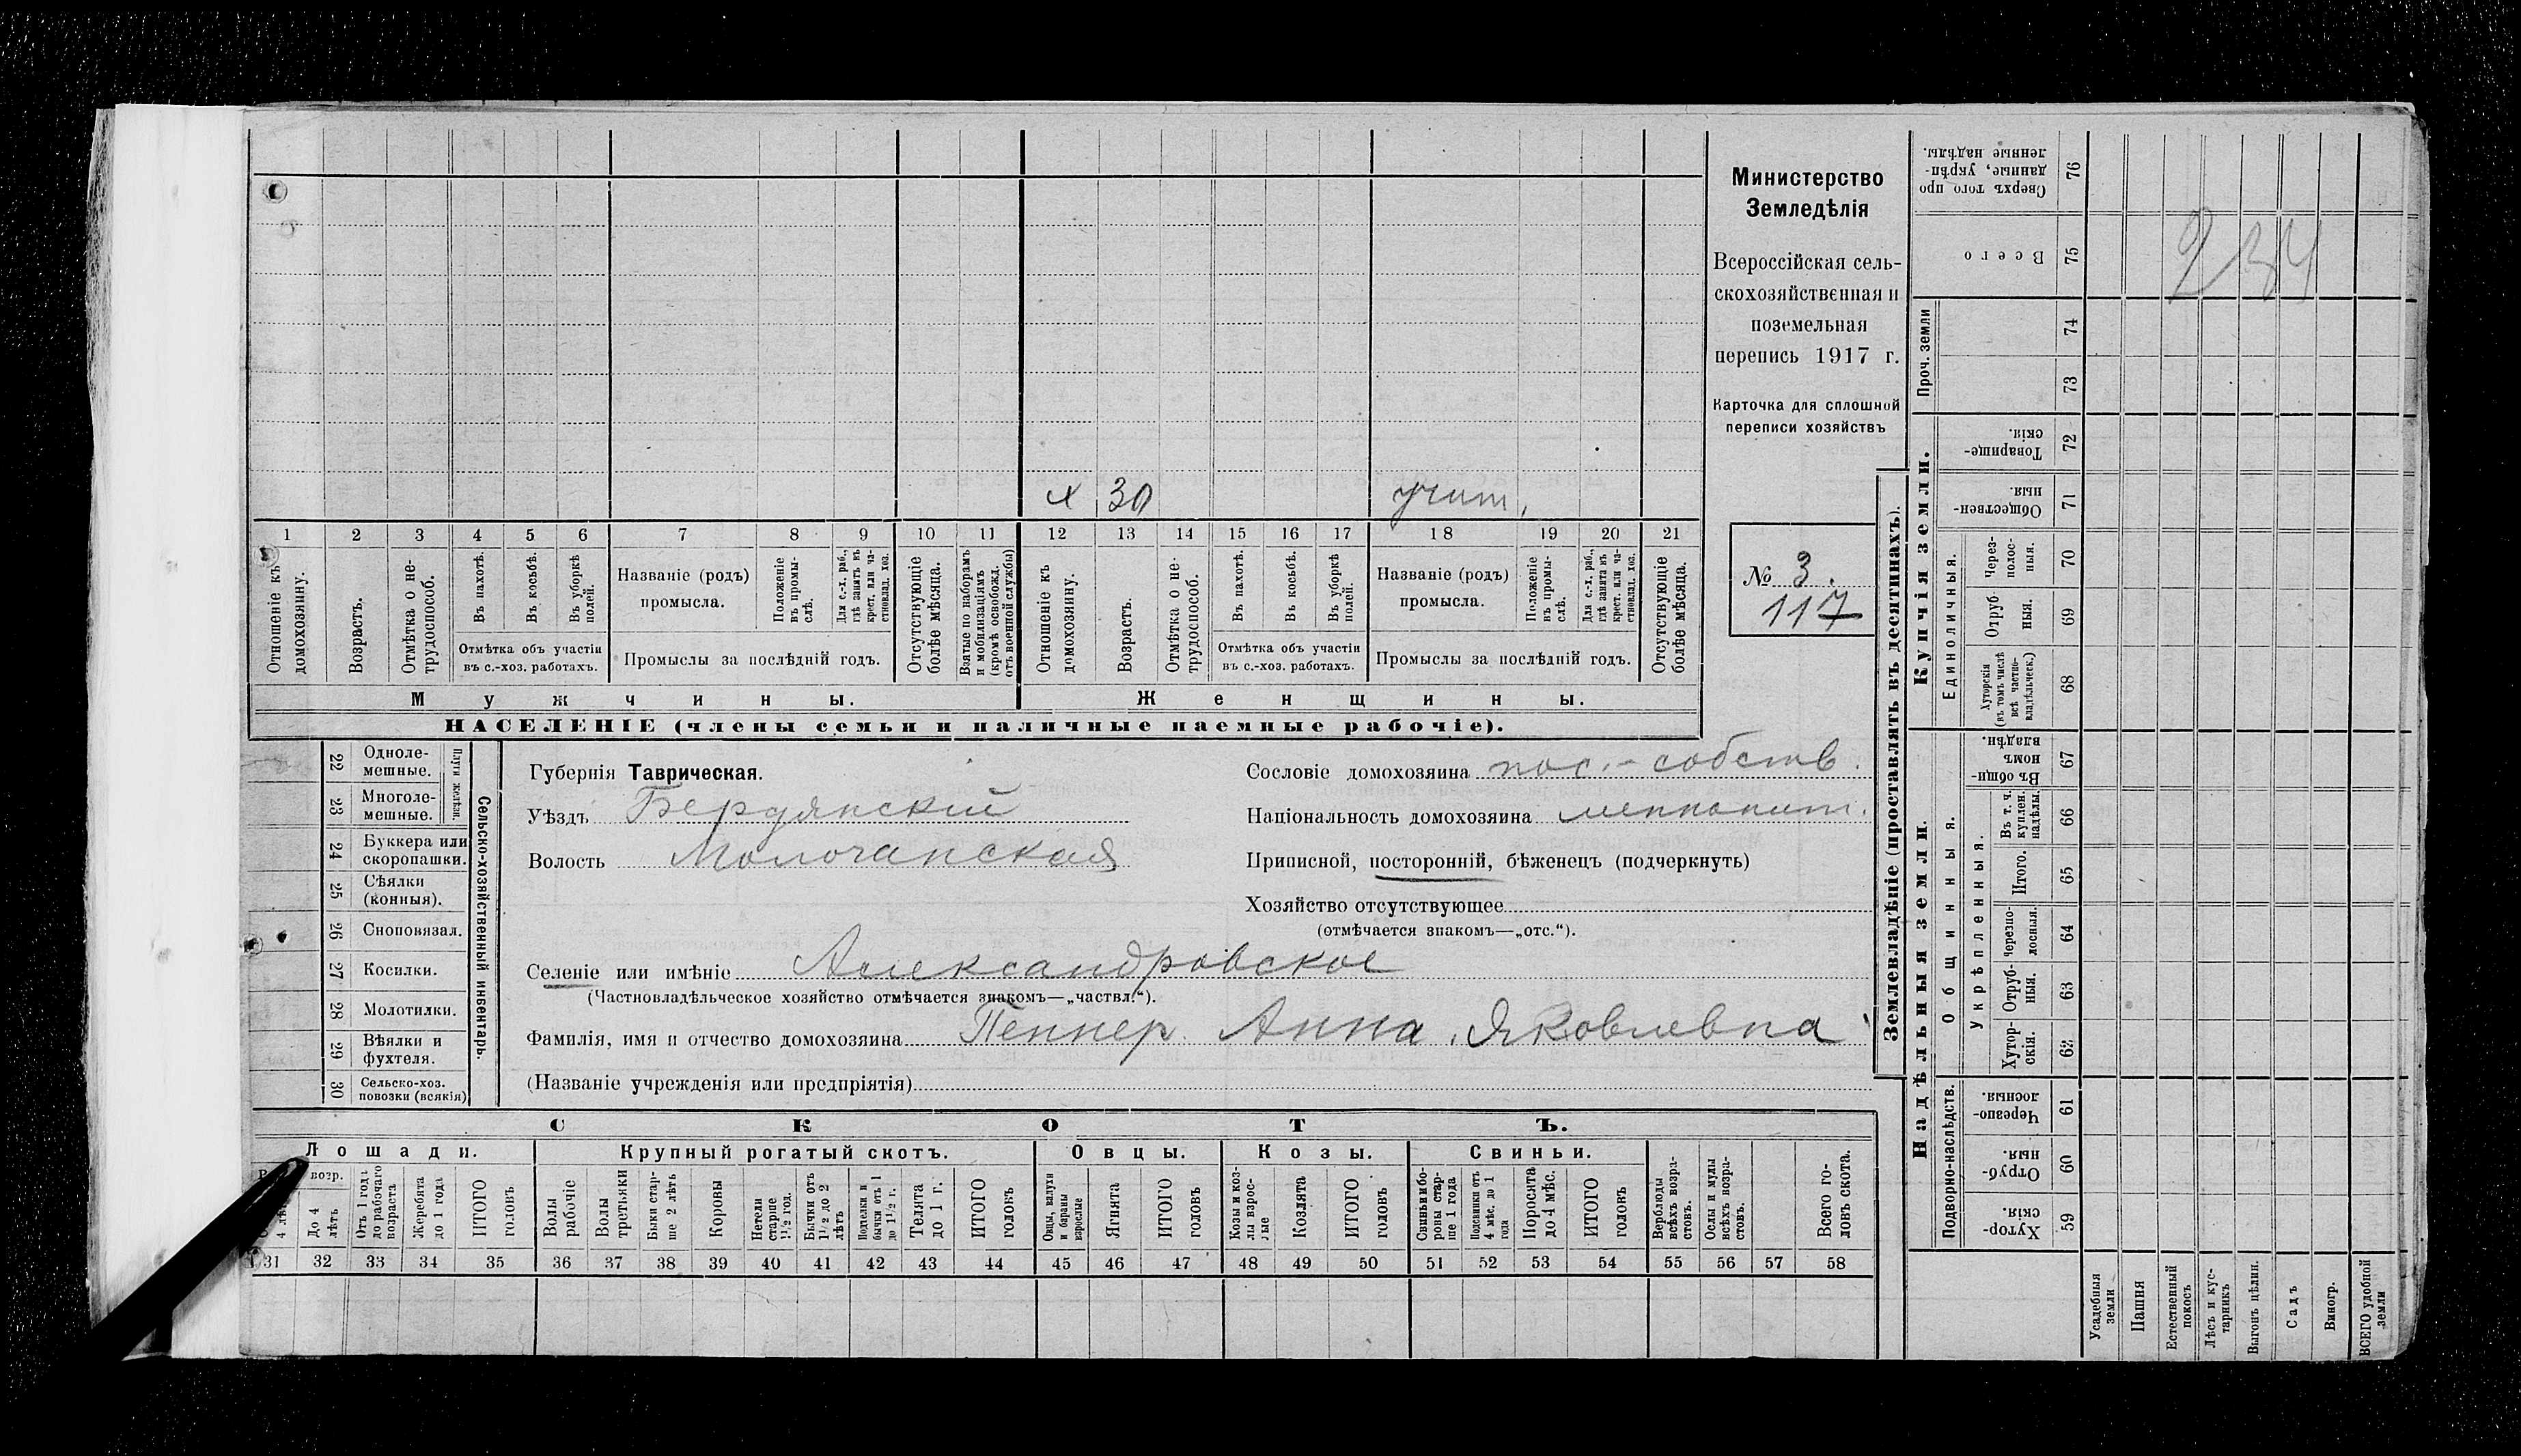 х 30 учит.
1 2 3 4 5 6 7 8 9 10 11 12 13 14 15 16 17 18 19 20 21
Отношеніе къ домохозяину.
Возрастъ.
Отмѣтка о нетрудоспособ.
Въ пахотѣ.
Въ косьбѣ.
Въ уборкѣ полей.
Отмѣтка объ участіи
въ с.-хоз. работахъ.
Названіе (родъ)
промысла.
Положеніе въ промыслѣ.
Для с.-х. раб., гдѣ занятъ въ крест. или частновлад. хоз.
Промыслы за послѣдній годъ.
Отсутствующіе болѣе мѣсяца.
Взятые по наборамъ и мобилизаціямъ (кромѣ освобожд. отъ военной службы)
Отношеніе къ домохозяину.
Возрастъ.
Отмѣтка о нетрудоспособ.
Въ пахотѣ.
Въ косьбѣ.
Въ уборкѣ полей.
Отмѣтка объ участіи
въ с.-хоз. работахъ.
Названіе (родъ)
промысла.
Положеніе въ промыслѣ.
Для с.-х. раб., гдѣ занята въ крест. или частновлад. хоз.
Промыслы за послѣдній годъ.
Отсутствующіе болѣе мѣсяца.
Мужчины.
Женщины.
НАСЕЛЕНІЕ (члены семьи и наличные наемные рабочіе).
Министерство
Земледѣлія
Всероссійская сель-
скохозяйственная и
поземельная
перепись 1917 г.
Карточка для сплошной
переписи хозяйствъ
№ 3.
117
22 Одноле-
мешные.
23 Многоле-
мешные.
Плуги желѣзн.
24 Буккера или
скоропашки.
25 Сѣялки
(конныя).
26 Сноповязал.
27 Косилки.
28 Молотилки.
29 Вѣялки и
фухтеля.
30 Сельско-хоз.
повозки (всякія)
Сельско-хозяйственный инвентарь.
Губернія Таврическая.
Уѣздъ Бердянскій
Волость Молочанская
Сословіе домохозяина пос.-собств.
Національность домохозяина меннонит.
Приписной, посторонній, бѣженецъ (подчеркнуть)
Хозяйство отсутствующее
(отмѣчается знакомъ—„отс.“).
Селеніе или имѣніе Александровское
(Частновладѣльческое хозяйство отмѣчается знакомъ—„частвл.“).
Фамилія, имя и отчество домохозяина Пеннер Анна Яковлевна
(Названіе учрежденія или предпріятія)
СКОТЪ.
Лошади.
Крупный рогатый скотъ.
Овцы.
Козы.
Свиньи.
возр.
До 4 лѣтъ
Отъ 1 года до рабочаго возраста
Жеребята до 1 года
ИТОГО головъ
Волы рабочіе
Волы третьяки
Быки старше 2 лѣтъ
Коровы
Нетели старше 1½ год.
Бычки отъ 1½ до 2 лѣтъ
Подтелки и бычки отъ 1 до 1½ г.
Телята до 1 г.
ИТОГО головъ
Овцы, валухи и бараны взрослые
Ягнята
ИТОГО головъ
Козы и козлы взрослые
Козлята
ИТОГО головъ
Свиньи и боровы старше 1 года
Подсвинки отъ 4 мѣс. до 1 года
Поросята до 4 мѣс.
ИТОГО головъ
Верблюды всѣхъ возрастовъ.
Ослы и мулы всѣхъ возрастовъ.
Всего головъ скота.
31 32 33 34 35 36 37 38 39 40 41 42 43 44 45 46 47 48 49 50 51 52 53 54 55 56 57 58
Землевладѣніе (проставлять въ десятинахъ).
Надѣльныя земли.
Купчія земли.
Проч. земли
Подворно-наслѣдств.
Общинныя.
Укрѣпленныя.
Единоличныя.
Сверхъ того проданные, укрѣпленные надѣлы. 76
Всего 75
74
73
Товарищескія. 72
Общественныя. 71
Черезполосныя. 70
Отрубныя. 69
Хуторскія (въ томъ числѣ всѣ частновладѣльческ.) 68
Въ общинномъ владѣн. 67
Въ т. ч. куплен. надѣлы. 66
Итого. 65
Черезполосныя. 64
Отрубныя. 63
Хуторскія. 62
Черезполосныя. 61
Отрубныя. 60
Хуторскія. 59
234
Усадебныя земли
Пашня
Естественный покосъ
Лѣсъ и кустарникъ
Выгонъ цѣлин.
Садъ
Виногр.
ВСЕГО удобной земли